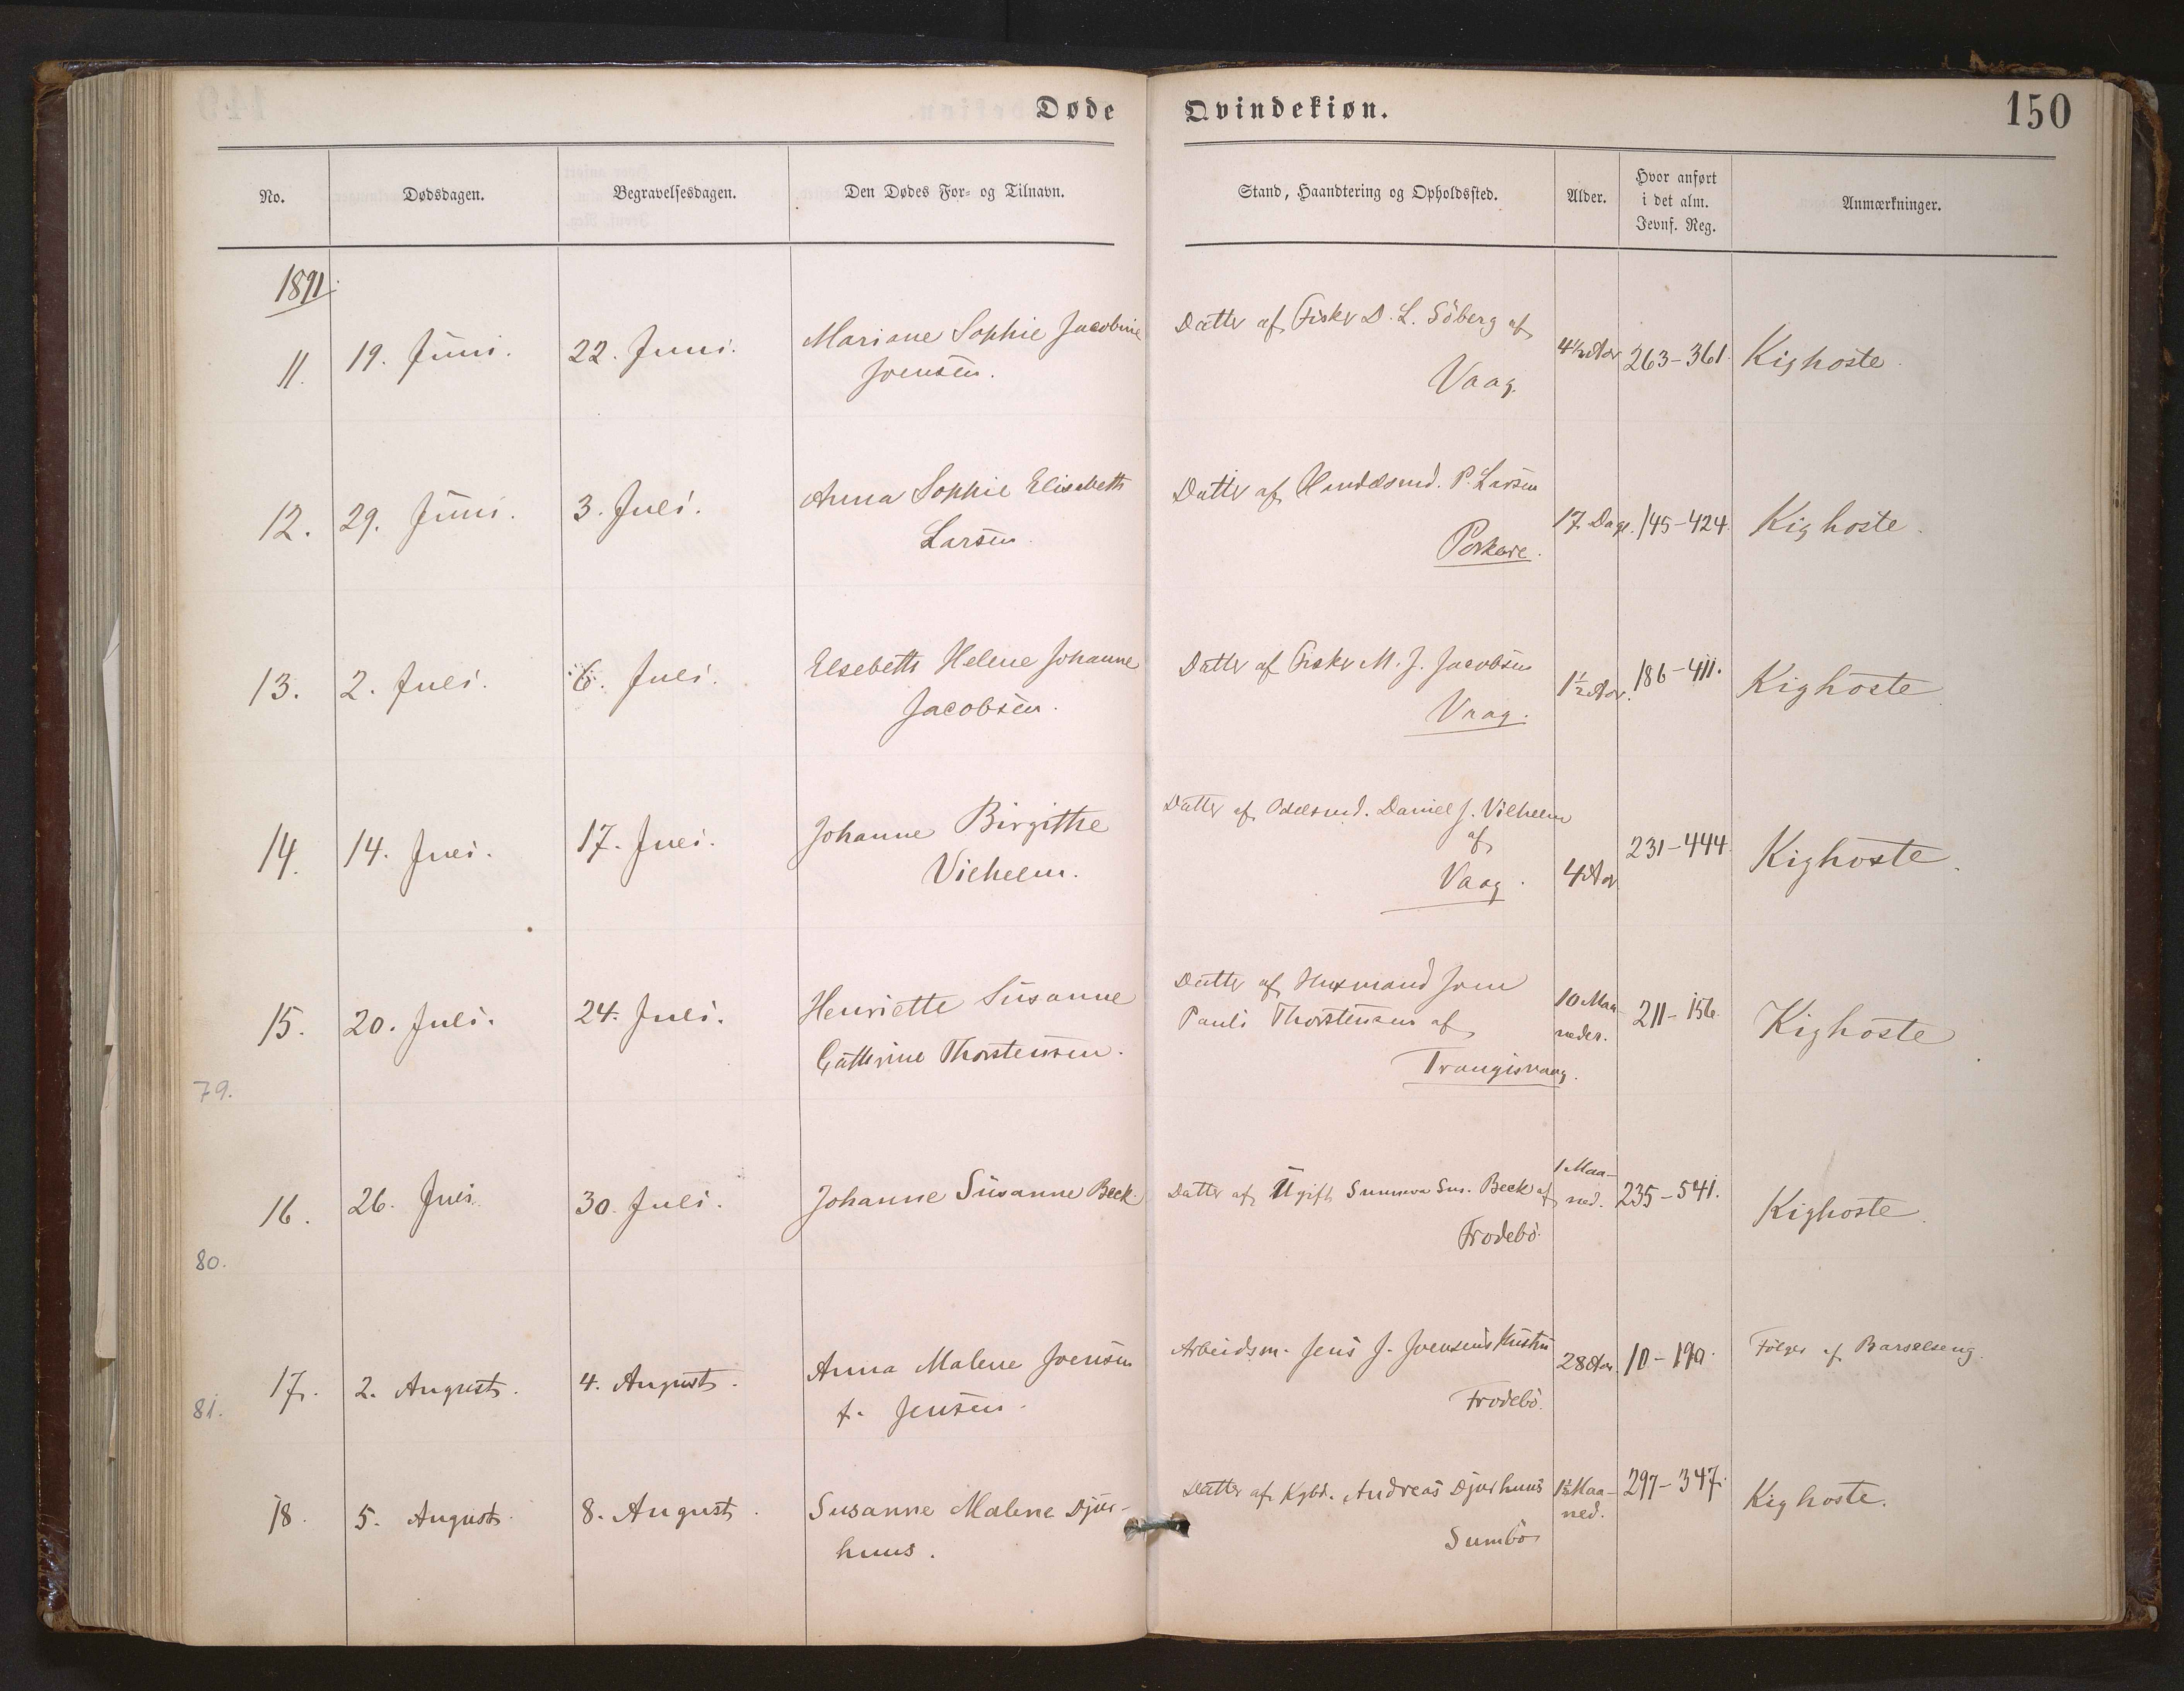 Døde Qvindekiøn. 150
No. Dødsdagen. Begravelsesdagen. Den Dødes For- og Tilnavn. Stand, Haandtering og Opholdssted. Alder. Hvor anført i det alm. Jevnf. Reg. Anmærkninger.
1891.
11. 19. Juni. 22. Juni. Mariane Sophie Jacobine Datter af Fisker D. L. Söberg af 4½ Aar 263-361. Kighoste.
Joensen. Vaag.
12. 29. Juni. 3. Juli. Anna Sophie Elisabeth Datter af Handelsmd. P. Larsen 17 Dage. 145-424. Kighoste.
Larsen. Porkere.
13. 2. Juli. 6. Juli. Elsebeth Helene Johanne Datter af Fisker M. J. Jacobsen 1½ Aar. 186-411. Kighoste
Jacobsen. Vaag.
14. 14. Juli. 17. Juli. Johanne Birgithe Datter af Odelsmd. Daniel J. Vilhelm 4 Aar 231-444. Kighoste.
Vilhelm. af
Vaag.
15. 20. Juli. 24. Juli. Henriette Susanne Datter af Huxmand Joen 10 Maa- 211-156. Kighoste
Cathrine Thorstensen. Pauli Thorstensen af neder.
Trangisvaag.
79.
16. 26. Juli. 30. Juli. Johanne Susanne Beck. Datter af Ugift Sunneva Sus. Beck af 1 Maa- 235-541. Kighoste.
ned.
Frodebö.
80.
17. 2. August. 4. August. Anna Malene Joensen Arbeidsm. Jens J. Joensens Hustru 28 Aar. 10-190. Følger af Barselseng.
f. Jensen. Frodebö.
81.
18. 5. August. 8. August. Susanne Malene Djur- Datter af Kgbd. Andreas Djurhuus 1½ Maa- 297-347. Kighoste.
huus. Sumbö ned.